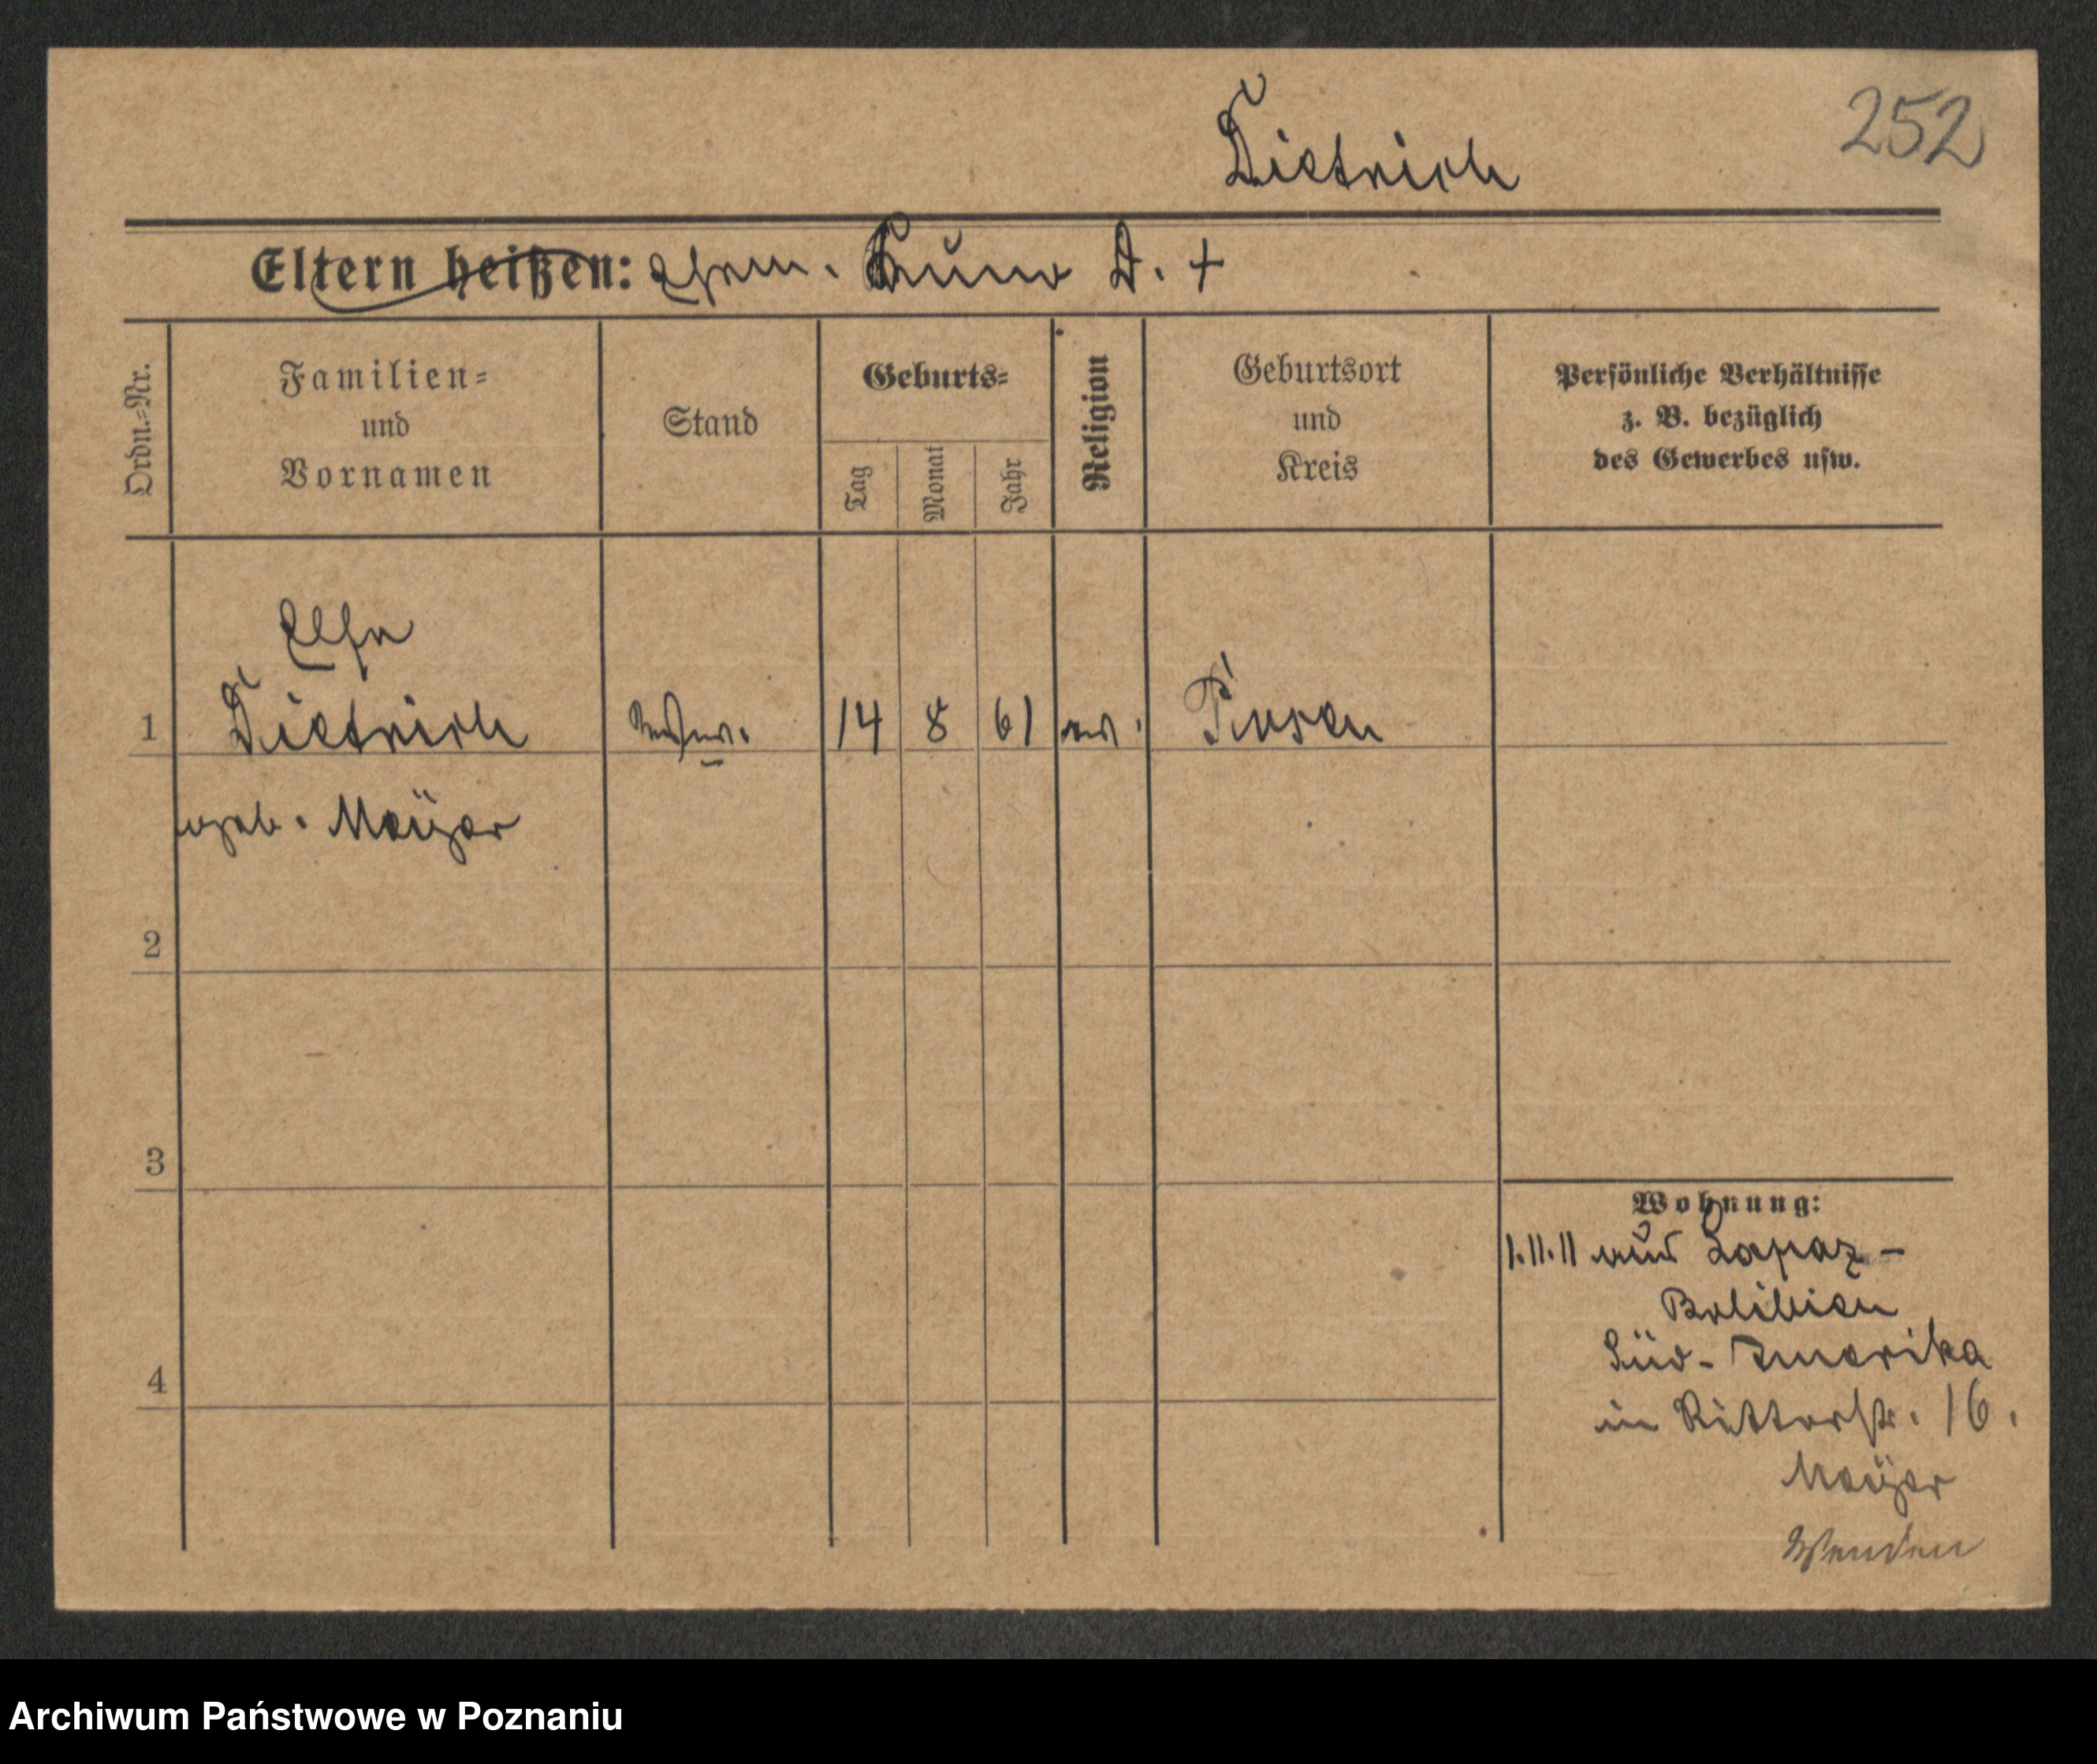 252
Dietrich
Eltern heißen: Ehem. Kuno D. +
Ordn.-Nr.
Familien-
und
Vornamen
Stand
Geburts-
Tag
Monat
Jahr
Religion
Geburtsort
und
Kreis
Persönliche Verhältnisse
z. B. bezüglich
des Gewerbes usw.
Elsa
1 Dietrich 14 8 61 ev. Posen
geb. Meÿer
2
3
4
Wohnung:
1.11.11 aus Lapaz -
Bolivien
Süd-Amerika
in Ritterstr. 16.
Meÿer
Wenden
Archiwum Państwowe w Poznaniu